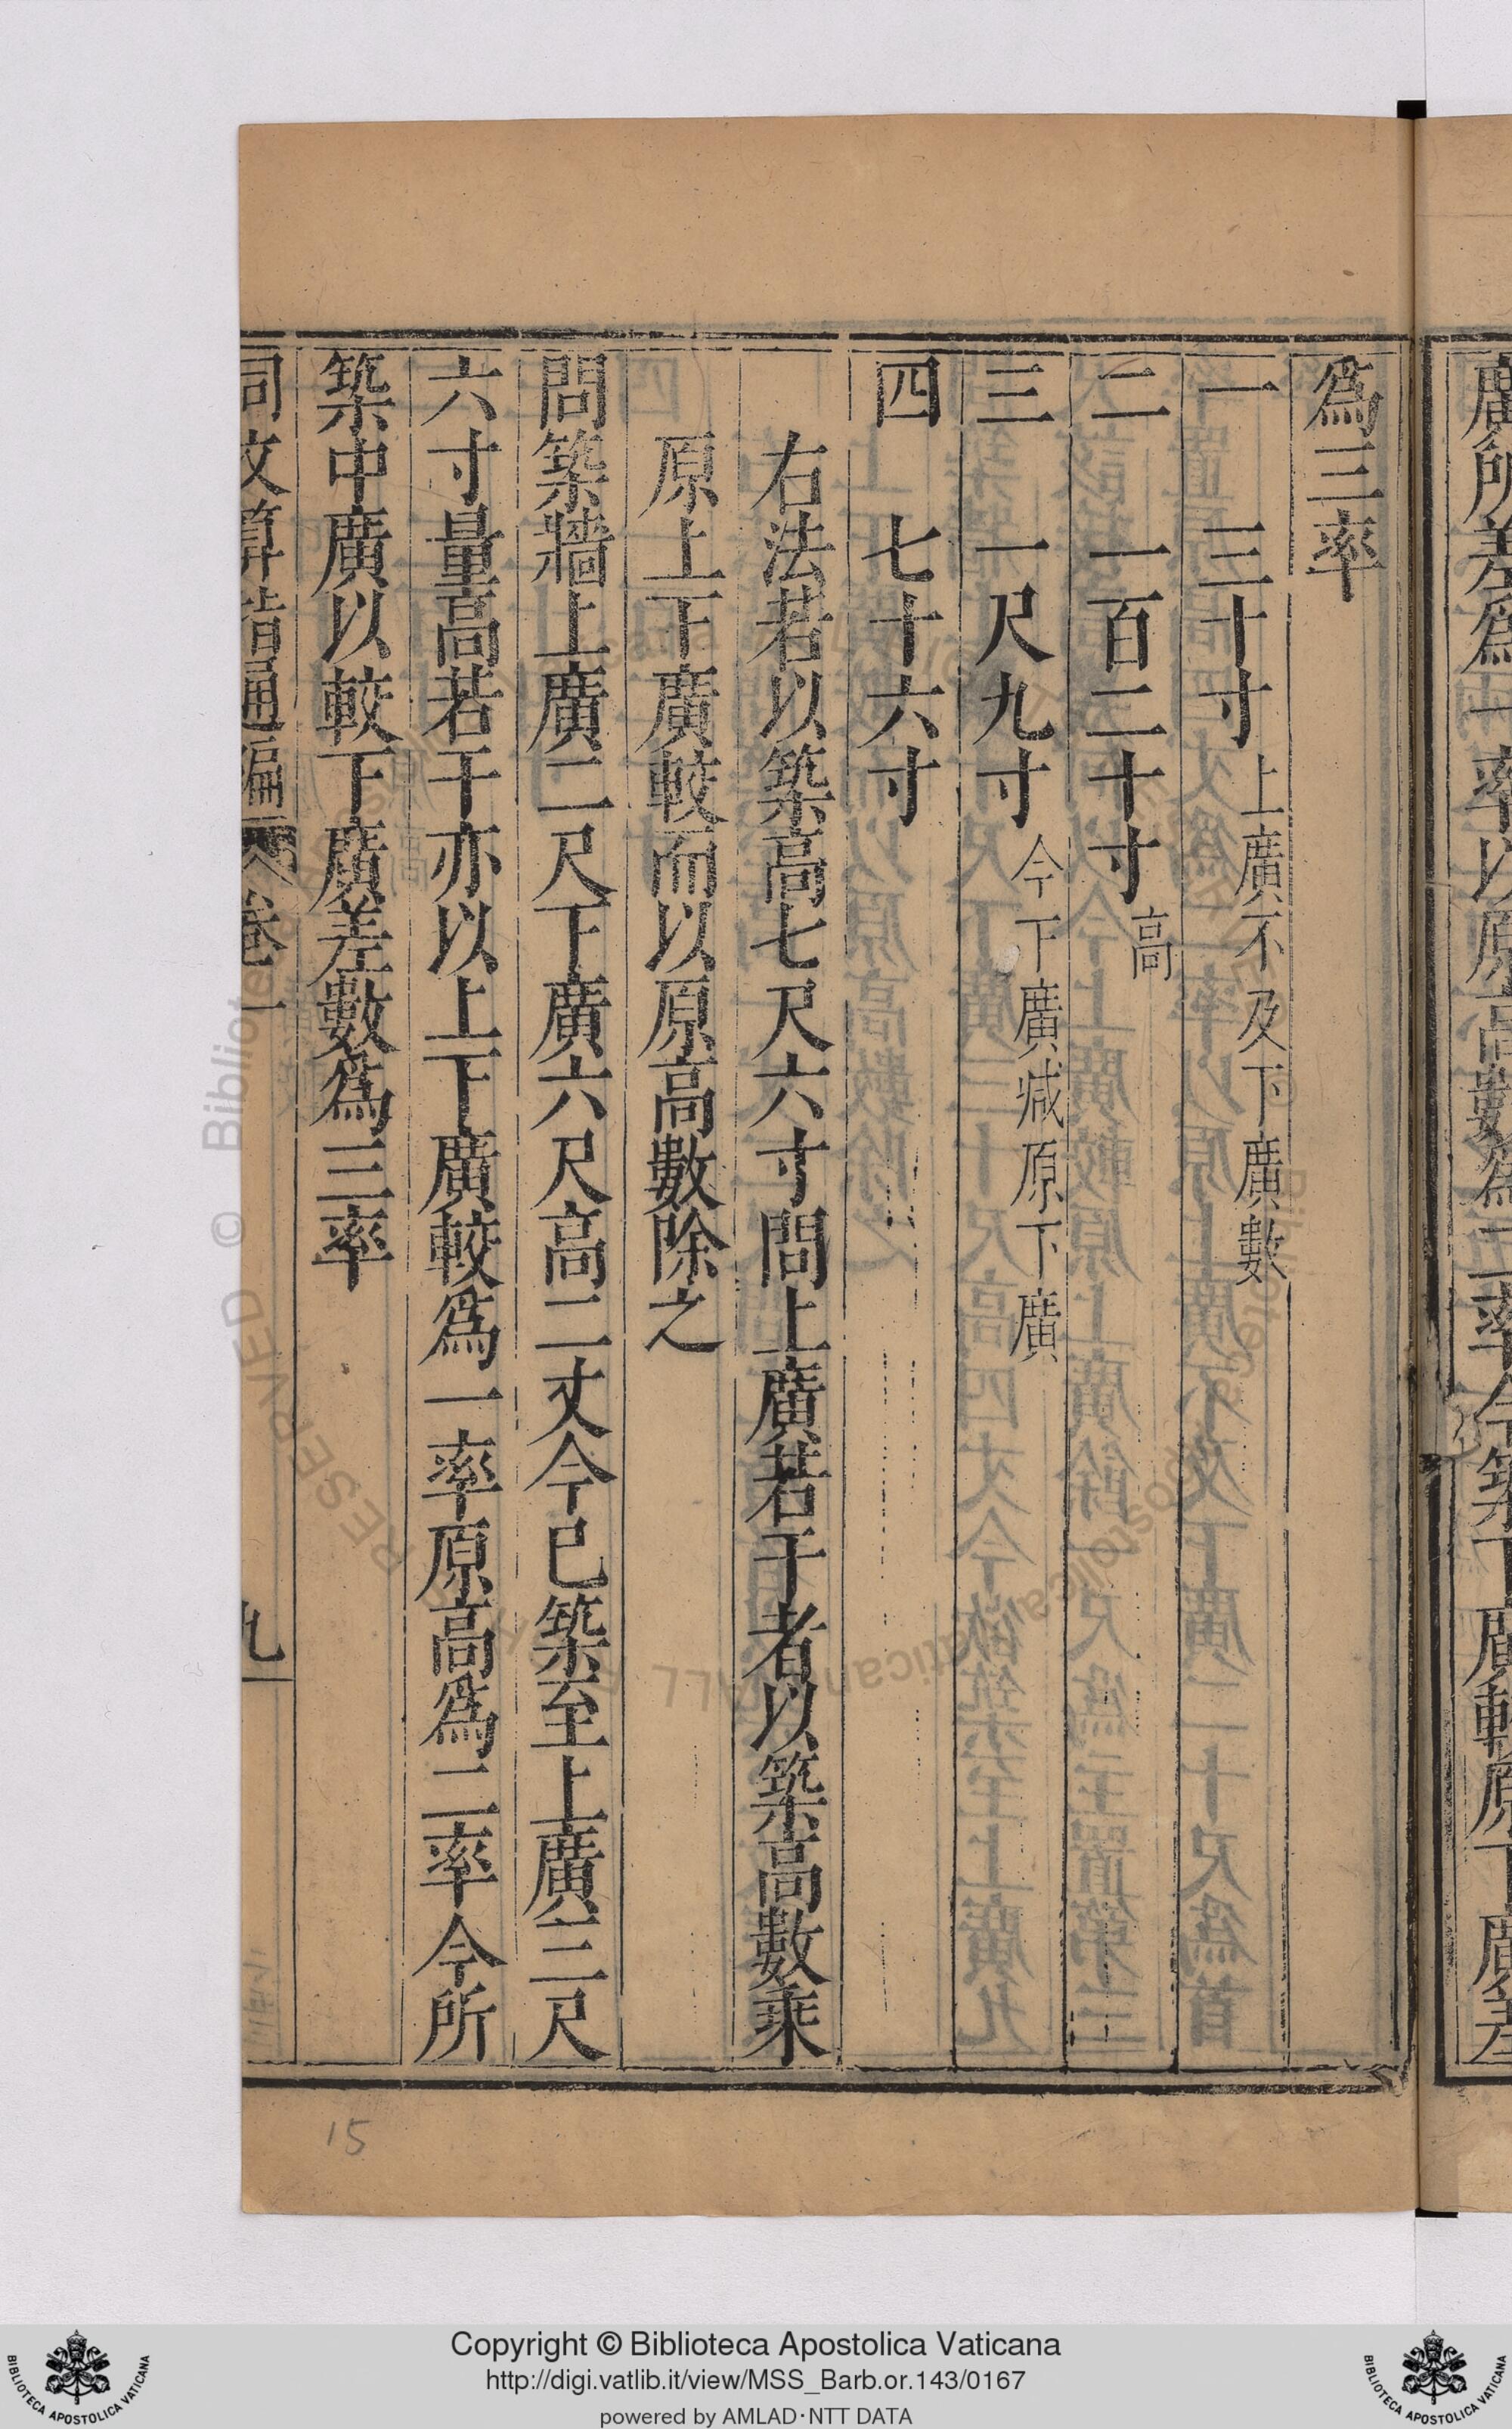 廣所差爲一率以原高數爲二率今築下廣較原下廣差
爲三率
一 三十寸 上廣不及下廣數
二 一百二十寸 高
三 一尺九寸 今下廣减原下廣
四 七十六寸
右法若以築高七尺六寸問上廣若干者以築高數乘
原上下廣較而以原高數除之
問築牆上廣二尺下廣六尺高二丈今已築至上廣三尺
六寸量高若干亦以上下廣較爲一率原高爲二率今所
築中廣以較下廣差數爲三率
同文算指通編 卷一 九
15
Copyright © Biblioteca Apostolica Vaticana
http://digi.vatlib.it/view/MSS_Barb.or.143/0167
powered by AMLAD·NTT DATA
BIBLIOTECA APOSTOLICA VATICANA
BIBLIOTECA APOSTOLICA VATICANA